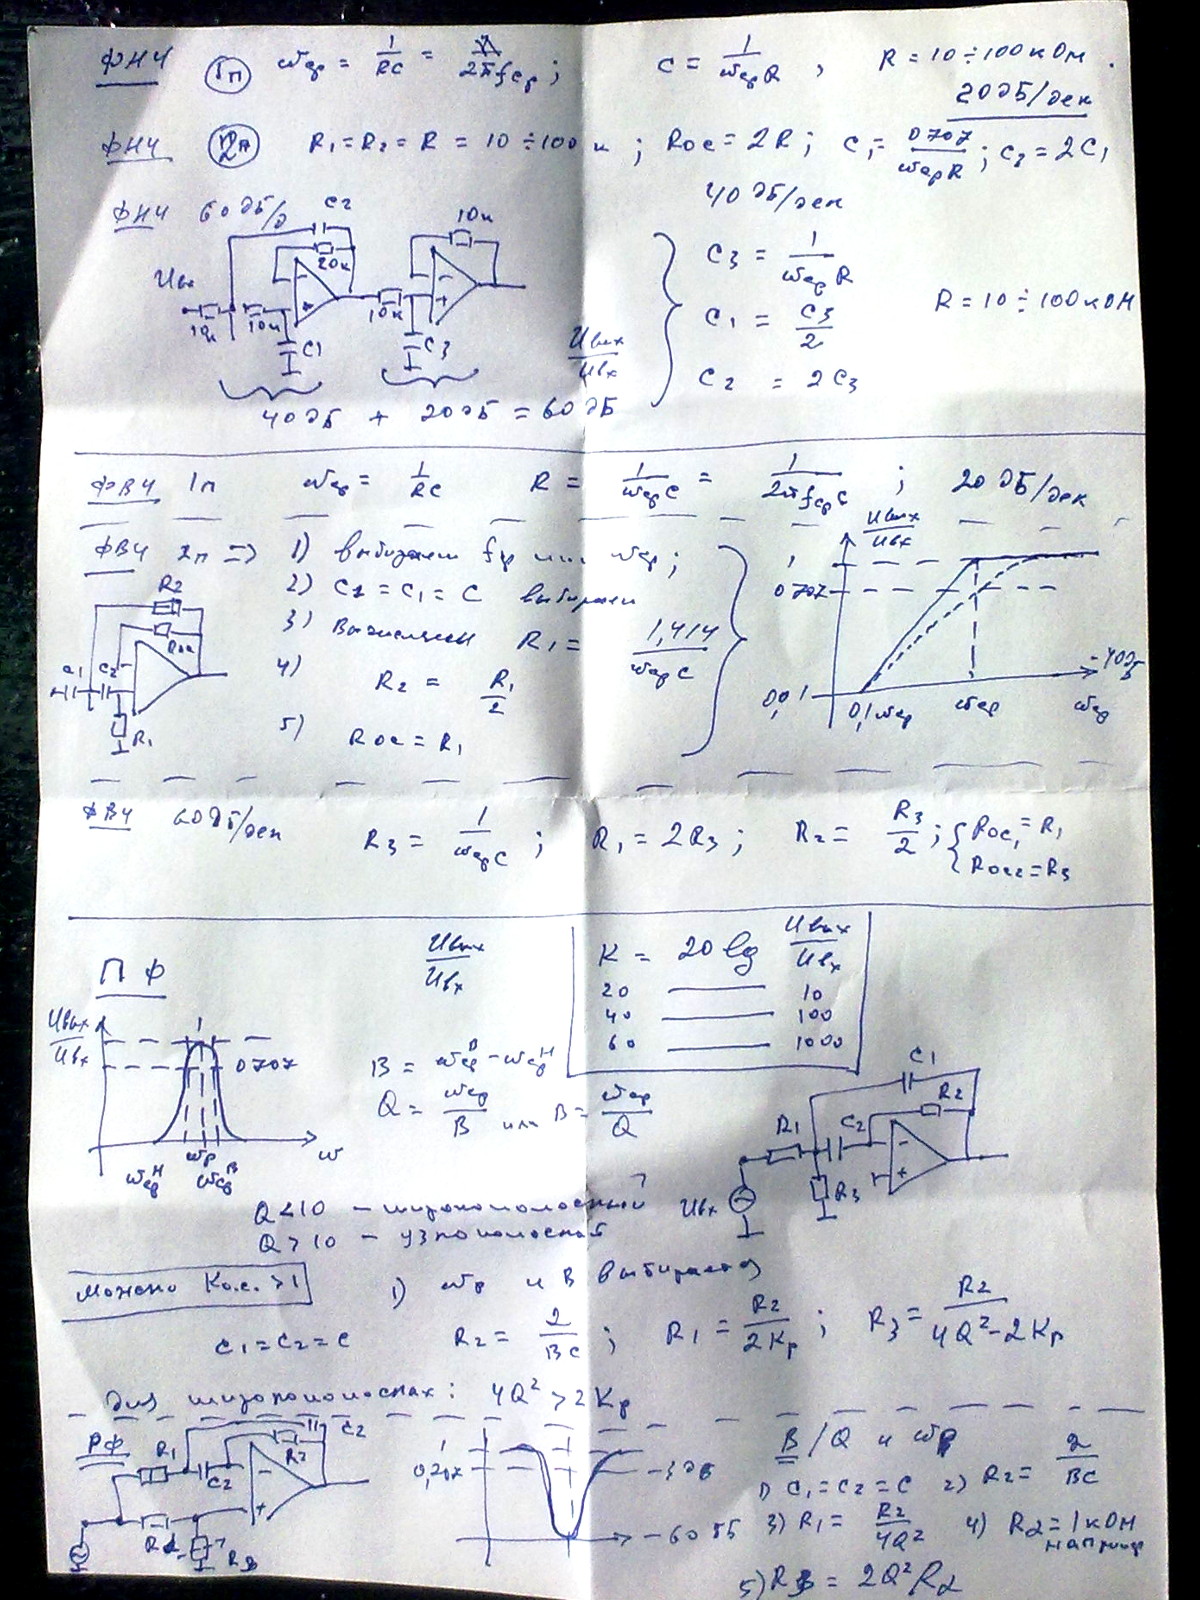 ФНЧ 1п ωср = 1/RC = 1/2πfср; C = 1/ωсрR, R = 10÷100 кОм.
20дБ/дек
ФНЧ 2п R1=R2=R = 10÷100 к; Rос=2R; C1= 0707/ωсрR; C2=2C1
40дБ/дек
ФНЧ 60дБ/д
C2
20к
10к
Uвх
10к
10к
10к
C1
C3
Uвых/Uвх
C3 = 1/ωсрR
C1 = C3/2
C2 = 2C3
R = 10÷100кОм
40дБ + 20дБ = 60дБ
ФВЧ 1п ωср = 1/RC R = 1/ωсрC = 1/2πfсрC; 20дБ/дек
ФВЧ 2п => 1) выбираем fср или ωср;
2) C2 = C1 = C выбираем
3) Вычисляем R1 = 1,414/ωсрC
4) R2 = R1/2
5) Rос = R1
R2
Rос
C1 C2
R1
Uвых/Uвх
1
0707
0,01
0,1ωср
ωср
-40дБ
ωср
ФВЧ 60дБ/дек R3 = 1/ωсрC; R1 = 2R3; R2 = R3/2; { Rос1 = R1
Rос2=R3
ПФ
Uвых/Uвх
K = 20 lg Uвых/Uвх
20 — 10
40 — 100
60 — 1000
Uвых/Uвх
1
0707
ωр
ωсрН
ωсрВ
ω
B = ωсрВ - ωсрН
Q = ωср/B или B = ωср/Q
C1
R2
R1
C2
R3
Uвх
Q<10 – широкополосный
Q>10 – узкополосный
можно Ко.с. >1
1) ωр и B выбирается
C1=C2=C R2 = 2/BC; R1 = R2/2Kр; R3 = R2/4Q²-2Kр
для широкополосных: 4Q² > 2Kр
РФ
R1
C2
R2
C2
Rα
RB
1
-3дБ
-60дБ
B/Q и ωр
1) C1=C2=C 2) R2 = 2/BC
3) R1 = R2/4Q² 4) Rα=1кОм
например
5) RB = 2Q²Rα